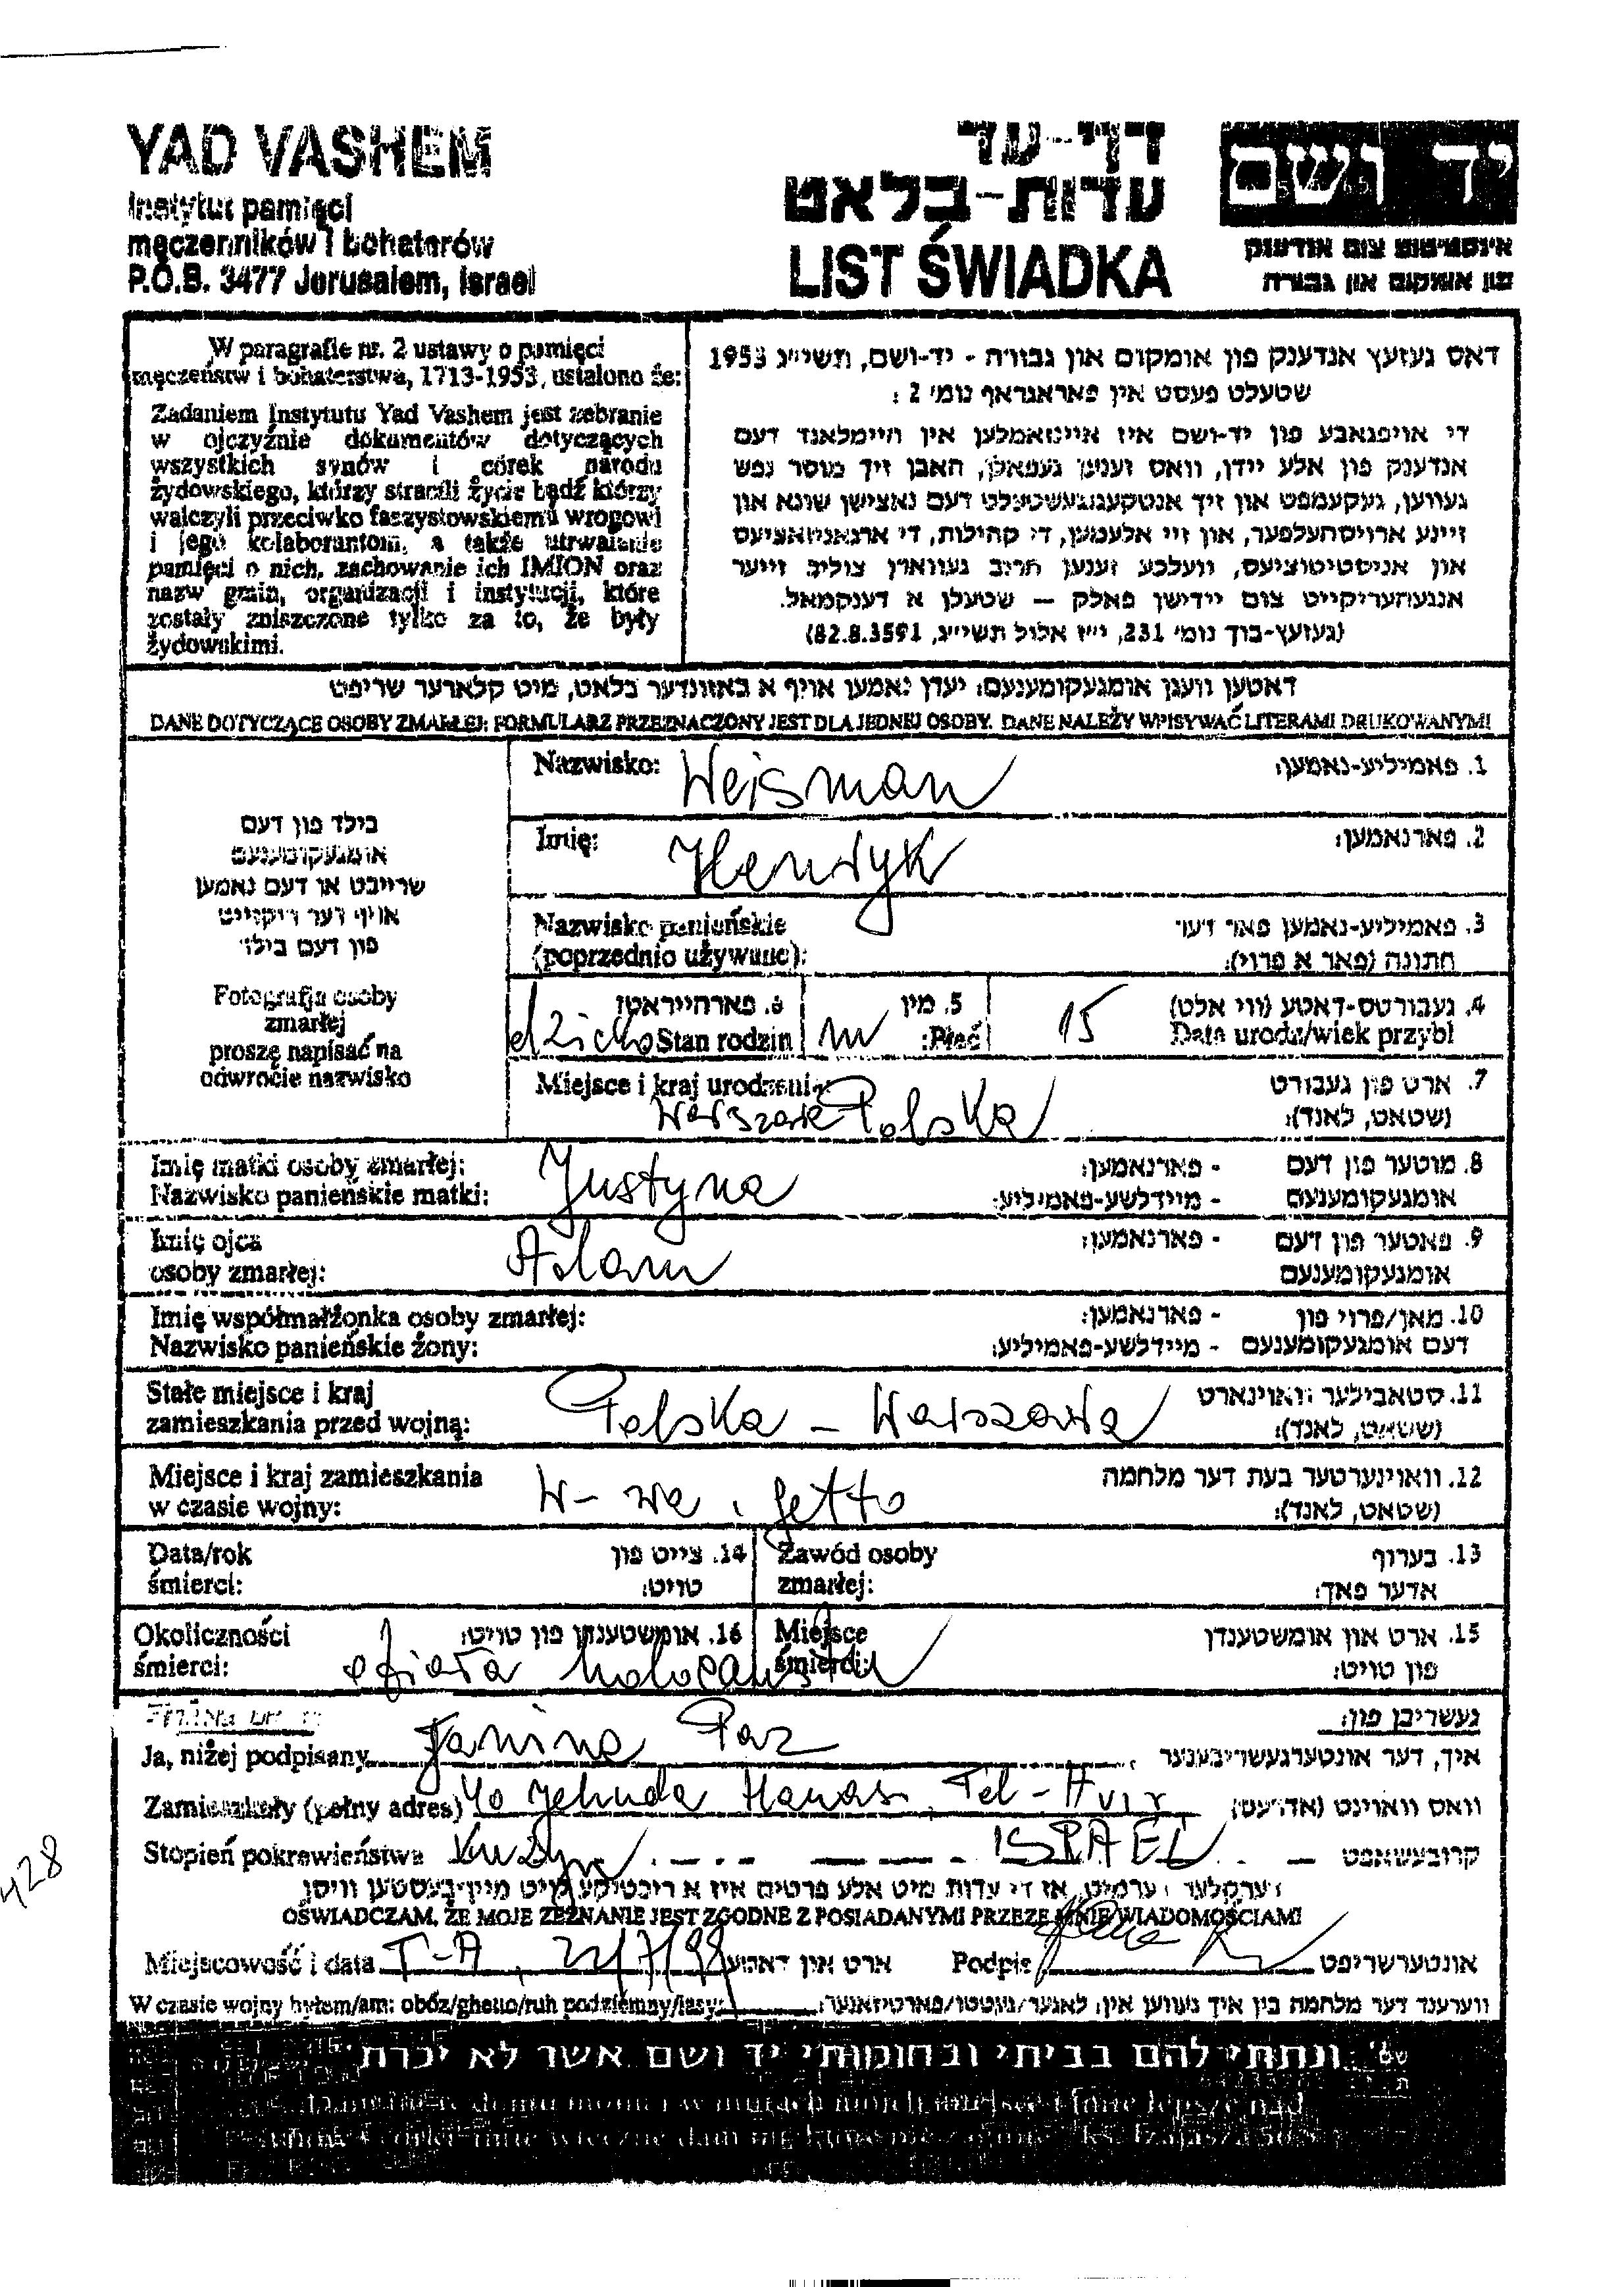 YAD VASHEM
Instytut pamięci
męczenników i bohaterów
P.O.B. 3477 Jerusalem, Israel
דף-עד
עדות-בלאט
LIST ŚWIADKA
יד ושם
אינסטיטוט צום אנדענק
פון אומקום און גבורה
W paragrafie nr. 2 ustawy o pamięci
męczeństw i bohaterstwa, 1713-1953, ustalono że:
Zadaniem Instytutu Yad Vashem jest zebranie
w ojczyźnie dokumentów dotyczących
wszystkich synów i córek narodu
żydowskiego, którzy stracili życie bądź którzy
walczyli przeciwko faszystowskiemu wrogowi
i jego kolaborantom, a także utrwalenie
pamięci o nich, zachowanie ich IMION oraz
nazw gmin, organizacji i instytucji, które
zostały zniszczone tylko za to, że były
żydowskimi.
דאס געזעץ אנדענק פון אומקום און גבורה - יד-ושם, תשי״ג 1953
שטעלט פעסט אין פאראגראף נומ׳ 2 :
די אויפגאבע פון יד-ושם איז איינזאמלען אין היימלאנד דעם
אנדענק פון אלע יידן, וואס זענען געפאלן, האבן זיך מוסר נפש
געווען, געקעמפט און זיך אנטקעגנגעשטעלט דעם נאצישן שונא און
זיינע ארויסהעלפער, און זיי אלעמען, די קהילות, די ארגאניזאציעס
און אינסטיטוציעס, וועלכע זענען חרוב געווארן צוליב זייער
אנגעהעריקייט צום יידישן פאלק – שטעלן א דענקמאל.
(געזעץ-בוך נומ׳ 231, י״ז אלול תשי״ג, 82.8.3591)
דאטען וועגן אומגעקומענעם: יעדן נאמען אויף א באזונדער בלאט, מיט קלארער שריפט
DANE DOTYCZĄCE OSOBY ZMARŁEJ: FORMULARZ PRZEZNACZONY JEST DLA JEDNEJ OSOBY. DANE NALEŻY WPISYWAĆ LITERAMI DRUKOWANYMI
בילד פון דעם
אומגעקומענעם
שרייבט אן דעם נאמען
אויף דער ריקזייט
פון דעם בילד
Fotografja osoby
zmarłej
proszę napisać na
odwrocie nazwisko
Nazwisko: Weisman 1. פאמיליע-נאמען:
Imię: Henryk 2. פארנאמען:
Nazwisko panieńskie 3. פאמיליע-נאמען פאר דער
(poprzednio używane): חתונה (פאר א פרוי):
6. פארהייראט 5. מין 4. געבורטס-דאטע (ווי אלט)
dziecko Stan rodzin m Płeć: 15 Data urodz/wiek przybl
Miejsce i kraj urodzenia: 7. ארט פון געבורט
Warszawa Polska (שטאט, לאנד):
Imię matki osoby zmarłej: Justyna 8. מוטער פון דעם - פארנאמען:
Nazwisko panieńskie matki: אומגעקומענעם - מיידלשע-פאמיליע:
Imię ojca Adam 9. פאטער פון דעם - פארנאמען:
osoby zmarłej: אומגעקומענעם
Imię współmałżonka osoby zmarłej: 10. מאן/פרוי פון - פארנאמען:
Nazwisko panieńskie żony: דעם אומגעקומענעם - מיידלשע-פאמיליע:
Stałe miejsce i kraj Polska - Warszawa 11. סטאבילער וואוינארט
zamieszkania przed wojną: (שטאט, לאנד):
Miejsce i kraj zamieszkania W-wa, getto 12. וואוינערטער בעת דער מלחמה
w czasie wojny: (שטאט, לאנד):
Data/rok 14. צייט פון Zawód osoby 13. בערוף
śmierci: טויט: zmarłej: אדער פאך:
Okoliczności 16. אומשטענדן פון טויט: Miejsce 15. ארט און אומשטענדן
śmierci: ofiara holocaustu śmierci: פון טויט:
געשריבן פון:
Ja, niżej podpisany Janina Paz איך, דער אונטערגעשריבענער
Zamieszkały (pełny adres) 40 Jehuda Hanasi, Tel-Aviv וואס וואוינט (אדרעס)
Stopień pokrewieństwa Kuzyn ISRAEL קרובעשאפט
דערקלער דערמיט, אז די עדות מיט אלע פרטים איז א ריכטיקע לויט מיין בעסטען וויסן
OŚWIADCZAM, ŻE MOJE ZEZNANIE JEST ZGODNE Z POSIADANYMI PRZEZE MNIE WIADOMOŚCIAMI
Miejscowość i data T-A, 22/7/99 ארט און דאטע Podpis אונטערשריפט
W czasie wojny byłem/am: obóz/ghetto/ruh podziemny/lasy: ווערענד דער מלחמה בין איך געווען אין: לאגער/געטטו/פארטיזאנער:
428
ונתתי להם בביתי ובחומותי יד ושם אשר לא יכרת